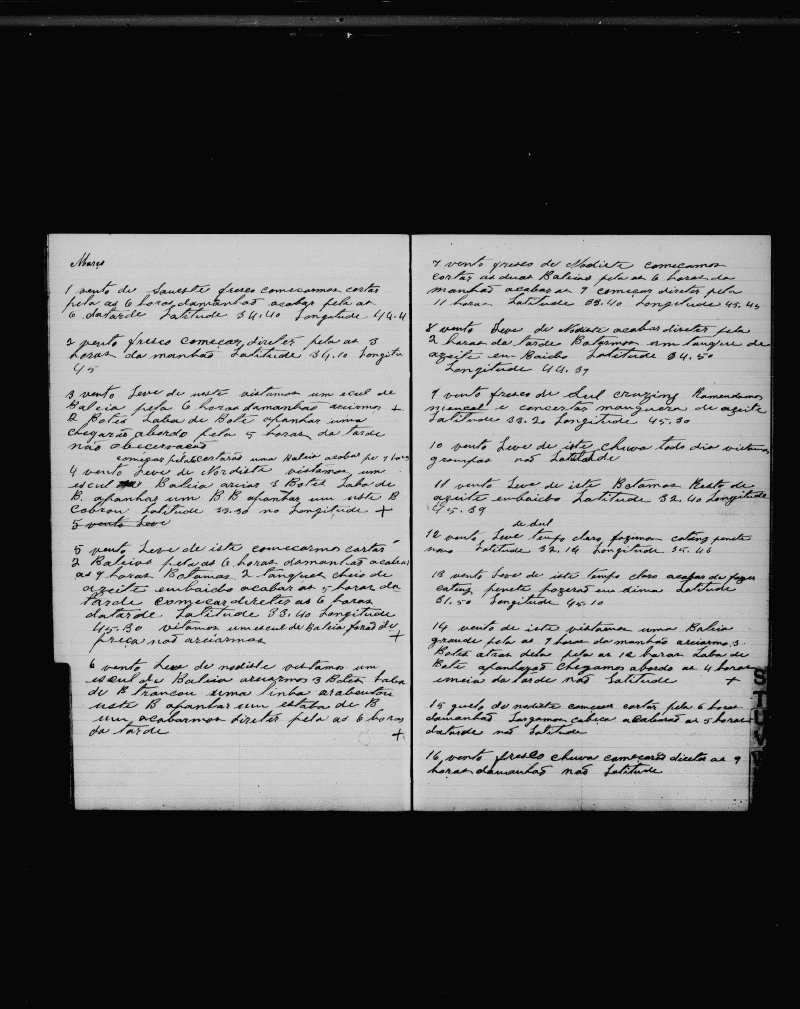 Março
1 vento de Sueste fresco comecamos cortar
pela as 6 horas damanhaõ acabar pela as
6 datarde Latitude 34.40 Longitude 44.4
2 vento fresco comecar direter pela as 3
horas da manhaõ Latitude 34.10 Longitu
45
3 vento Leve de ueste vistamos um ecul de
Baleia pela 6 horas damanhaõ arcirmos +
2 Botes Laba de Bote apanhar uma
chegaraõ abordo pela 5 horas da tarde
não obecervacaõ
comicar pelas cortaras uma Baleia acabar pe 9 hora
4 vento Leve de Nordiste vistamos um
escul Baleia arciar 3 Botes Laba de
B. apanhar um B B apanhar um uste B
Cobrou Latitude 33.30 no Longitude +
5 vento Leve
5 vento Leve de iste comecarmos cortar
2 Baleias pela as 6 horas damanhaõ acabar
as 9 horas Botamas 2 tanques cheio de
azeite embaicho acabar as 5 horas da
tarde comecar direter as 6 horas
datarde Latitude 33.40 Longitude
45.30 vitamos um escul de Baleia foraõ de
preca naõ arciarmos +
6 vento Leve de nodiste vistamos um
escul de Baleia arciarmos 3 Botes Laba
de B trancou uma linha arabentou
ueste B apanhar um estaba de B
um acabarmos direter pela as 6 horas
da tarde +
7 vento fresco de Nodiste comecamos
cortar as duas Baleias pela as 6 horas da
manhaõ acabar as 9 comecar direter pela
11 horas Latitude 33.40 Longitude 45.45
8 vento Leve de Nodiste acabar direter pela
2 horas da tarde Botarmos um tanque de
azeite em Baicho Latitude 34.50
Longitude 44.39
9 vento fresco de Sul cruzing Remendamos
e concertar manguera de azeite
Latitude 33.20 Longitude 45.30
10 vento Leve de iste chuva todo dia vistamos
grampas naõ Latitude
11 vento Leve de iste Botamos Resto de
azeite embaicho Latitude 32.40 Longitude
45.39
de Sul
12 vento Leve tempo claro fazemos catens penete
novo Latitude 32.14 Longitude 35.46
13 vento Leve de iste tempo claro acabar de fazer
catens penete pozeraõ em cima Latitude
31.50 Longitude 45.10
14 vento de iste vistamos uma Baleia
grande pela as 9 horas da manhaõ arciarmo 3
Botes atras dela pela as 12 horas Laba de
Bote apanharaõ Chegamos abordo as 4 horas
imeia da tarde naõ Latitude +
15 de nodiste comecar cortar pela 6 horas
damanhaõ Largamos cabeca acabaraõ as 5 horas
datarde naõ Latitude
16 vento fresco chuva comecaraõ direter as 9
horas damanhaõ naõ Latitude
S
T
U
V
W